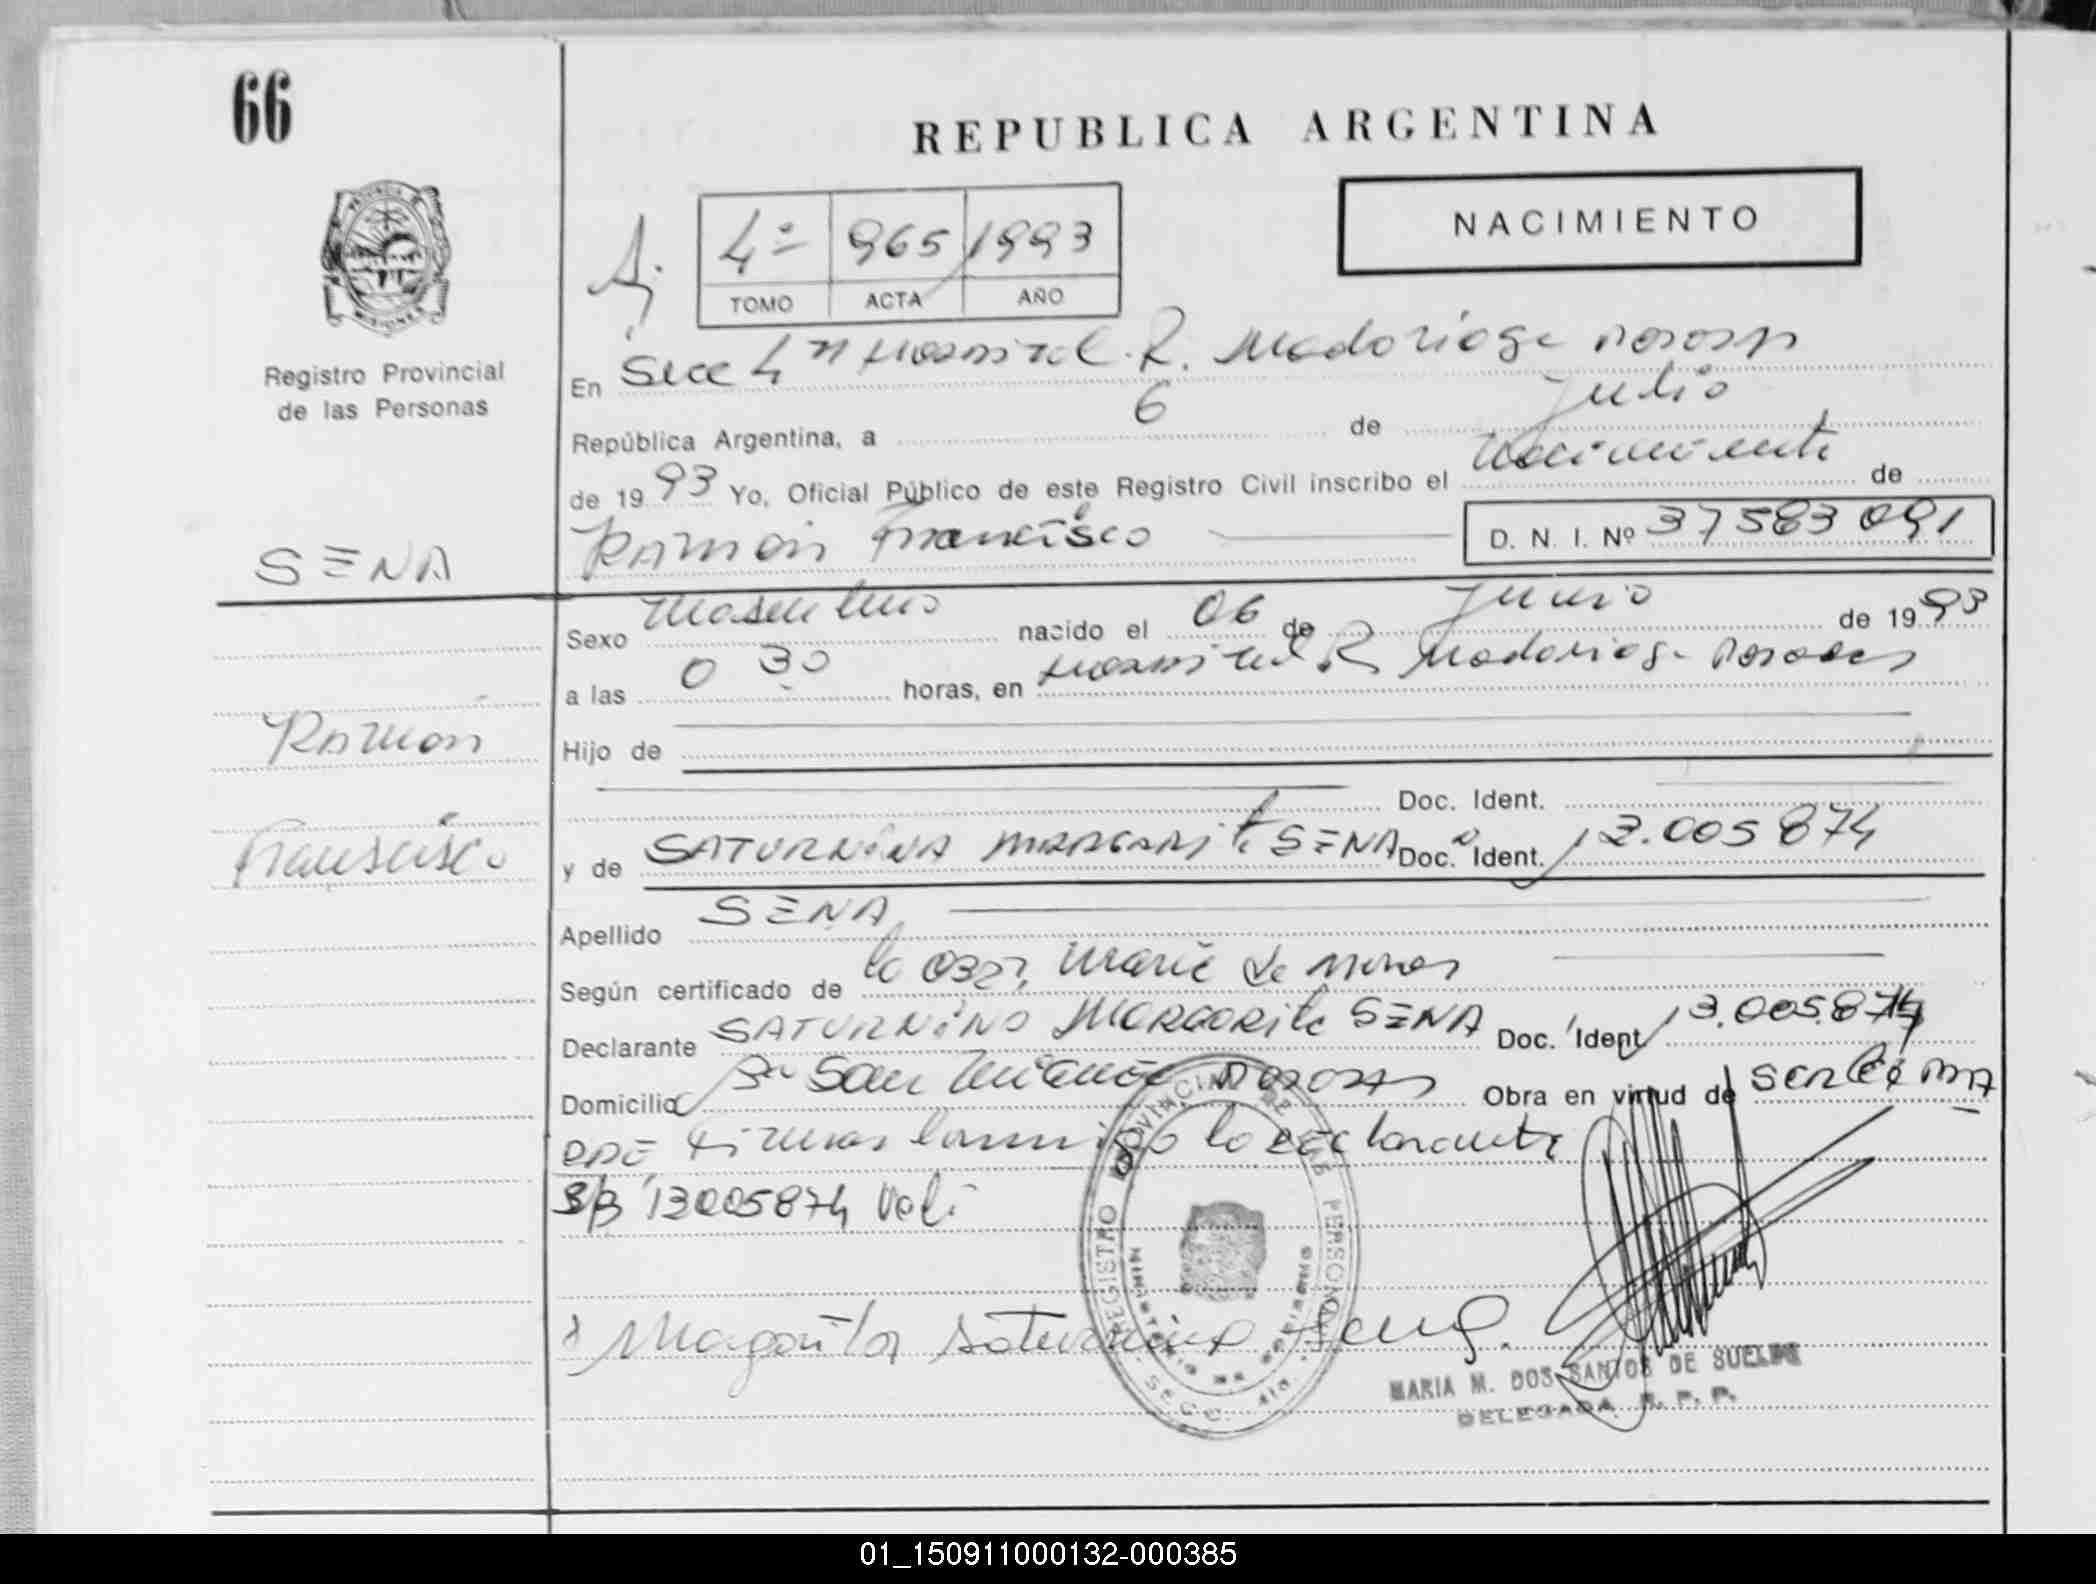 66
REPUBLICA ARGENTINA
NACIMIENTO
4º 965 1993
TOMO ACTA AÑO
Registro Provincial
de las Personas
En Secc 4ta Hospital R. Madariaga Posadas
República Argentina, a 6 de Julio
de 1993 Yo, Oficial Público de este Registro Civil inscribo el Nacimiento de
SENA
Ramón Francisco D. N. I. Nº 37583091
Sexo Masculino nacido el 06 de Junio de 1993
a las 0 30 horas, en Hospital R Madariaga Posadas
Ramón
Hijo de
Doc. Ident.
Franscisco
y de SATURNiNA MARGARita SENA Doc. Ident. 13.005874
Apellido SENA
Según certificado de la Obst, Maria de
Declarante SATURNiNA MARGARita SENA Doc. Ident 13.005.874
Domicilio Bº San Posadas Obra en virtud de ser la mA
DRE Firman conmigo la declarante
S/B 13005874 Vale
Margarita Saturnina Sena.
REGISTRO PROVINCIAL DE LAS PERSONAS
MINISTERIO DE GOBIERNO
SECC. 4ta.
MARIA M. DOS SANTOS DE SUELDO
DELEGADA R. P. P.
01_150911000132-000385